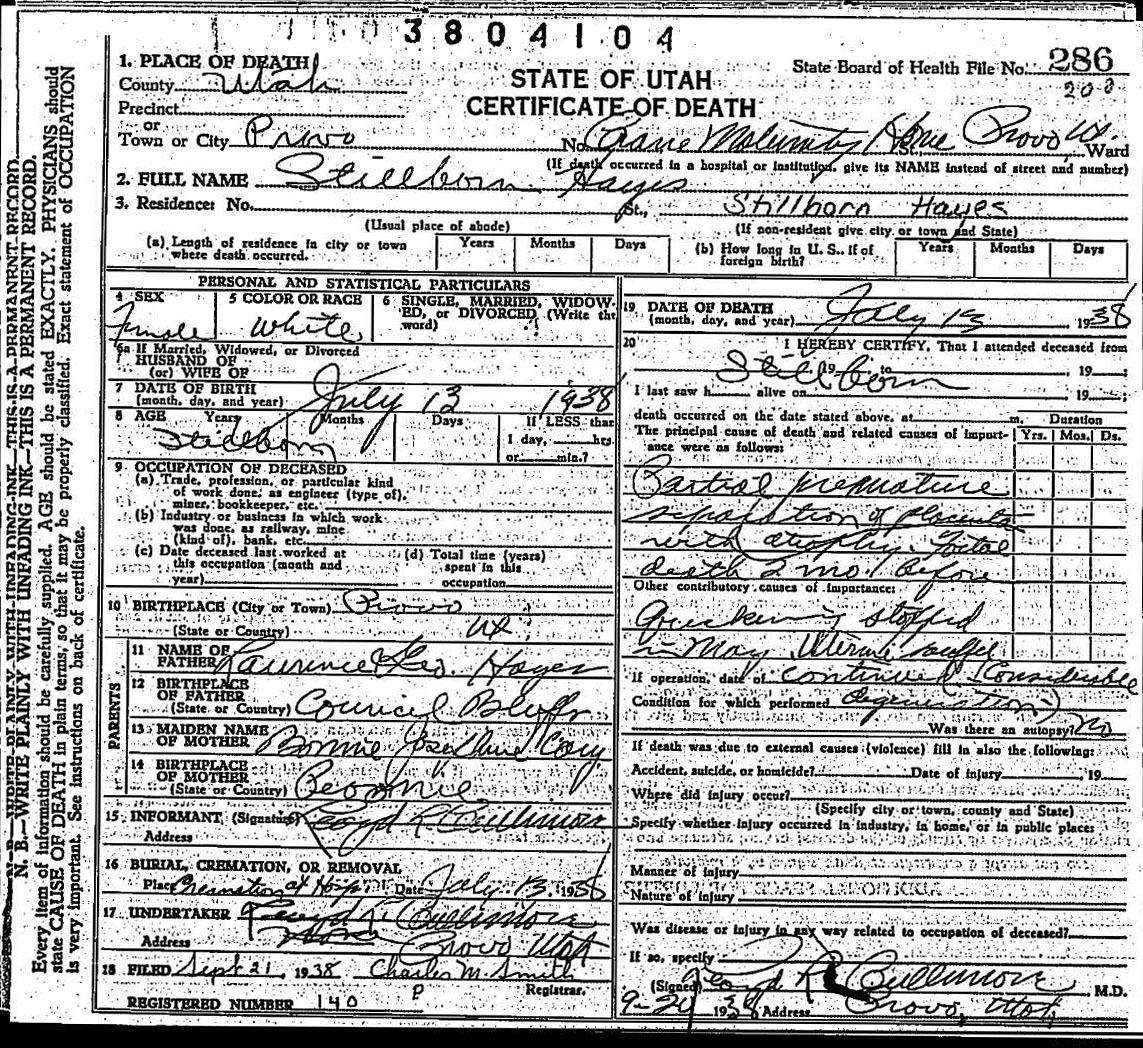 3804104
1. PLACE OF DEATH
County Utah
Precinct
or
Town or City Provo
STATE OF UTAH
CERTIFICATE OF DEATH
State Board of Health File No. 286
200
No. Crane Maternity Home Provo Ut. Ward
(If death occurred in a hospital or institution, give its NAME instead of street and number)
2. FULL NAME Stillborn Hayes
3. Residence: No. St., Stillborn Hayes
(Usual place of abode) (If non-resident give city or town and State)
(a) Length of residence in city or town where death occurred. Years Months Days
(b) How long in U. S., if of foreign birth? Years Months Days
PERSONAL AND STATISTICAL PARTICULARS
4 SEX Female
5 COLOR OR RACE White
6 SINGLE, MARRIED, WIDOWED, or DIVORCED (Write the word)
6a If Married, Widowed, or Divorced
HUSBAND OF
(or) WIFE OF
7 DATE OF BIRTH
(month, day, and year) July 13 1938
8 AGE Years Months Days If LESS than
Stillborn 1 day, hrs.
or min.?
9 OCCUPATION OF DECEASED
(a) Trade, profession, or particular kind
of work done, as engineer (type of),
miner, bookkeeper, etc.
(b) Industry or business in which work
was done, as railway, mine
(kind of), bank, etc.
(c) Date deceased last worked at
this occupation (month and
year)
(d) Total time (years)
spent in this
occupation
10 BIRTHPLACE (City or Town) Provo
(State or Country) Ut
PARENTS
11 NAME OF
FATHER Laurence Geo. Hayes
12 BIRTHPLACE
OF FATHER
(State or Country) Council Bluffs
13 MAIDEN NAME
OF MOTHER Bonnie Josephine
14 BIRTHPLACE
OF MOTHER
(State or Country)
15 INFORMANT (Signature) Lloyd L Cullimore
Address
16 BURIAL, CREMATION, OR REMOVAL
Place Cremation at Hosp. Date July 13 1938
17 UNDERTAKER Lloyd L Cullimore
Address Provo Utah
18 FILED Sept 21, 1938 Charles M. Smith
Registrar.
P
REGISTERED NUMBER 140
19 DATE OF DEATH
(month, day, and year) July 13 1938
20 I HEREBY CERTIFY, That I attended deceased from
Stillborn 19 to 19
I last saw h alive on 19
death occurred on the date stated above, at m. Duration
The principal cause of death and related causes of importance were as follows: Yrs. Mos. Ds.
Partial premature
separation of placenta
with atrophy. Foetal
death 2 mo. before
Other contributory causes of importance:
Quickening stopped
in May Uterine souffle
If operation, date of continued (Considerable
Condition for which performed degeneration)
Was there an autopsy? no
If death was due to external causes (violence) fill in also the following:
Accident, suicide, or homicide? Date of injury , 19
Where did injury occur?
(Specify city or town, county and State)
Specify whether injury occurred in industry, in home, or in public place:
Manner of injury
Nature of injury
Was disease or injury in any way related to occupation of deceased?
If so, specify
(Signed) Lloyd L Cullimore M.D.
9-20 1938 Address Provo, Utah
N. B.—WRITE PLAINLY WITH UNFADING INK—THIS IS A PERMANENT RECORD.
N. B.—WRITE PLAINLY WITH UNFADING INK—THIS IS A PERMANENT RECORD.
Every item of information should be carefully supplied. AGE should be stated EXACTLY. PHYSICIANS should
state CAUSE OF DEATH in plain terms, so that it may be properly classified. Exact statement of OCCUPATION
is very important. See instructions on back of certificate.